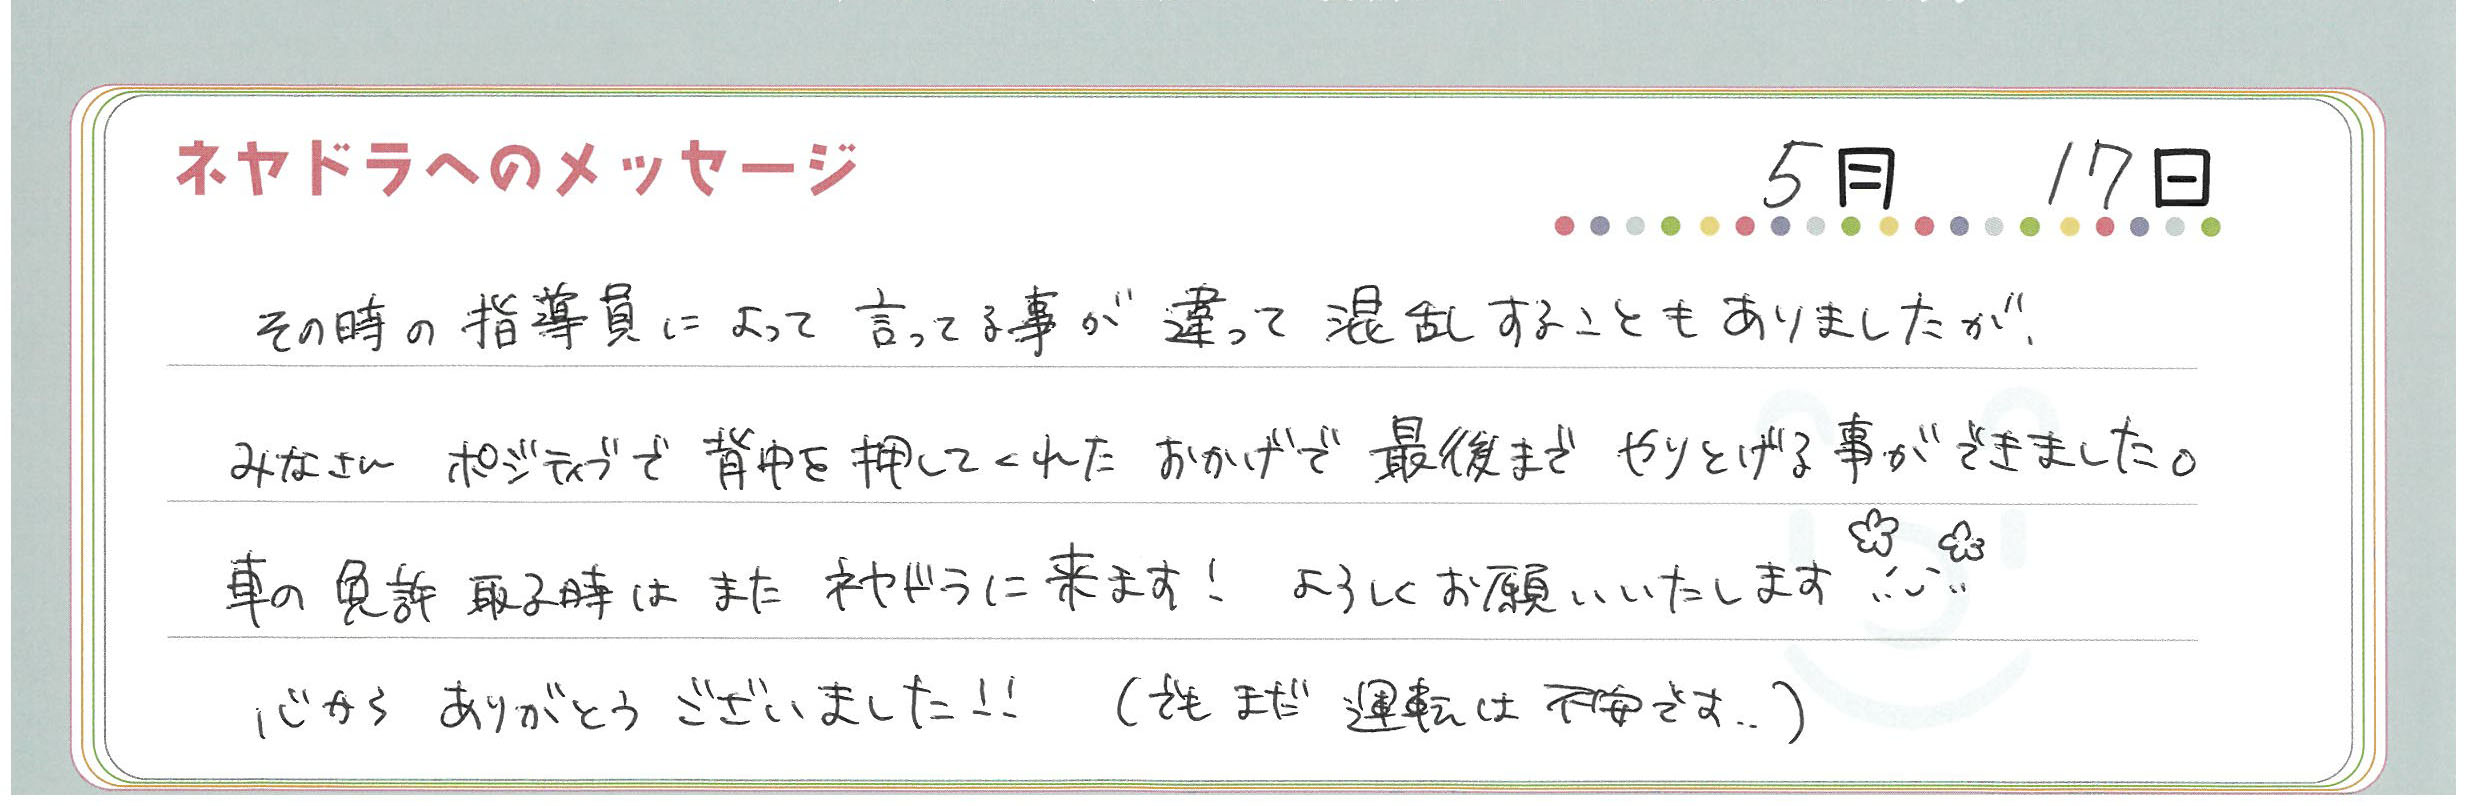 ネヤドラへのメッセージ
5月 17日
その時の指導員によって言ってる事が違って混乱することもありましたが、
みなさん ポジティブで背中を押してくれた おかげで最後まで やりとげる事ができました。
車の免許取る時は また ネヤドラに来ます! よろしくお願いいたします
心から ありがとう ございました!! (でも まだ 運転は 不安です..)